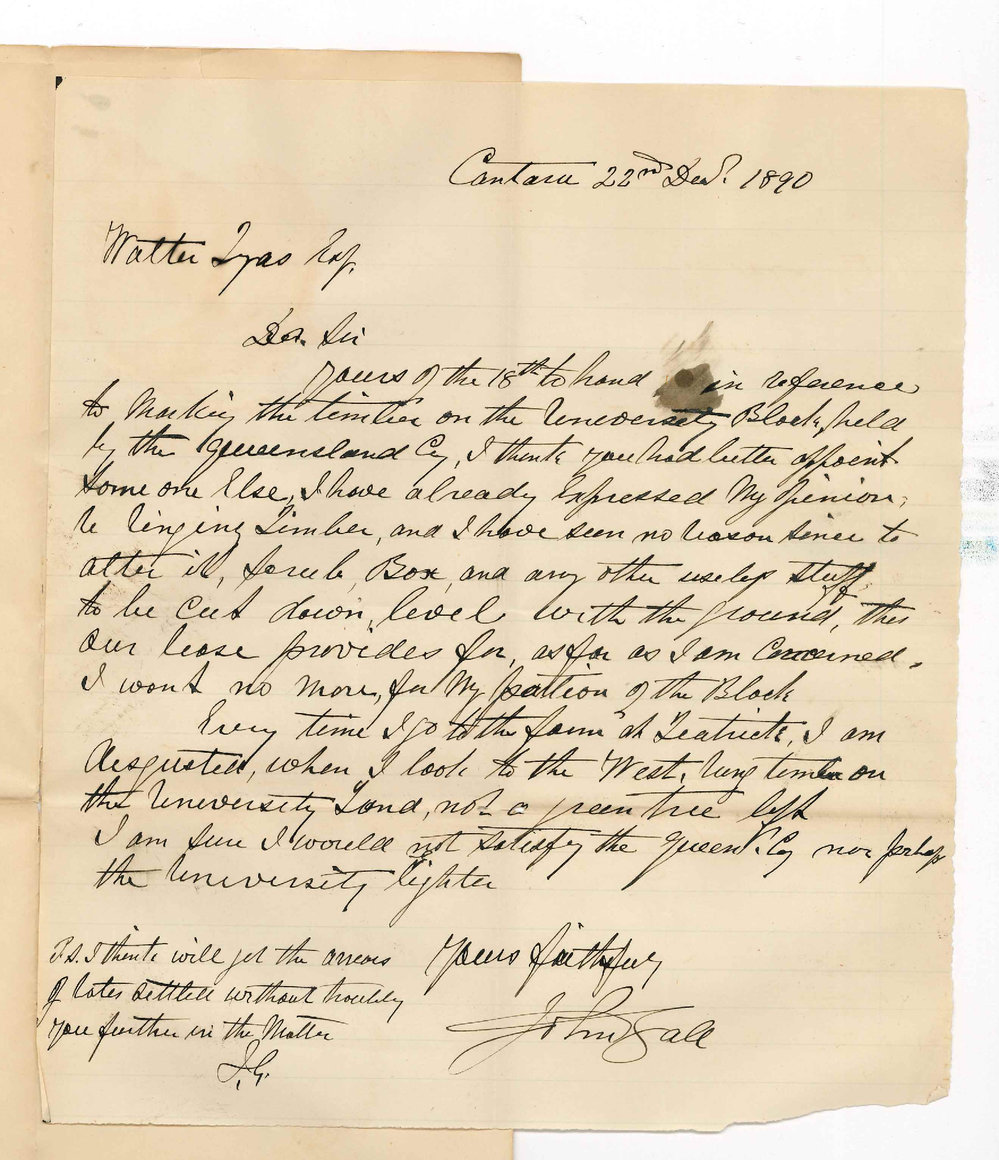 Cantara 22nd Decr. 1890
Walter Tyas Esq.
Dr. Sir
Yours of the 18th to hand in reference
to Marking the timber on the University Block, held
by the Queensland Coy, I think you had better appoint
Some one Else, I have already Expressed My Opinion,
re Ringing Timber, and I have seen no reason since to
alter it, Scrub, Box, and any other useless stuff
to be Cut down, level with the ground, this
Our lease provides for, as far as I am Concerned,
I want no more, for My portion of the Block
Every time I go to the farm at I am
disgusted, when I look to the West, rung timber on
the University Land, not a green tree left
I am Sure I would not satisfy the Queend. Coy nor perhaps
the University
Yours faithfuly
John Gall
P.S. I think will get the arrears
of rates settled without
you further in the Matter
J.G.